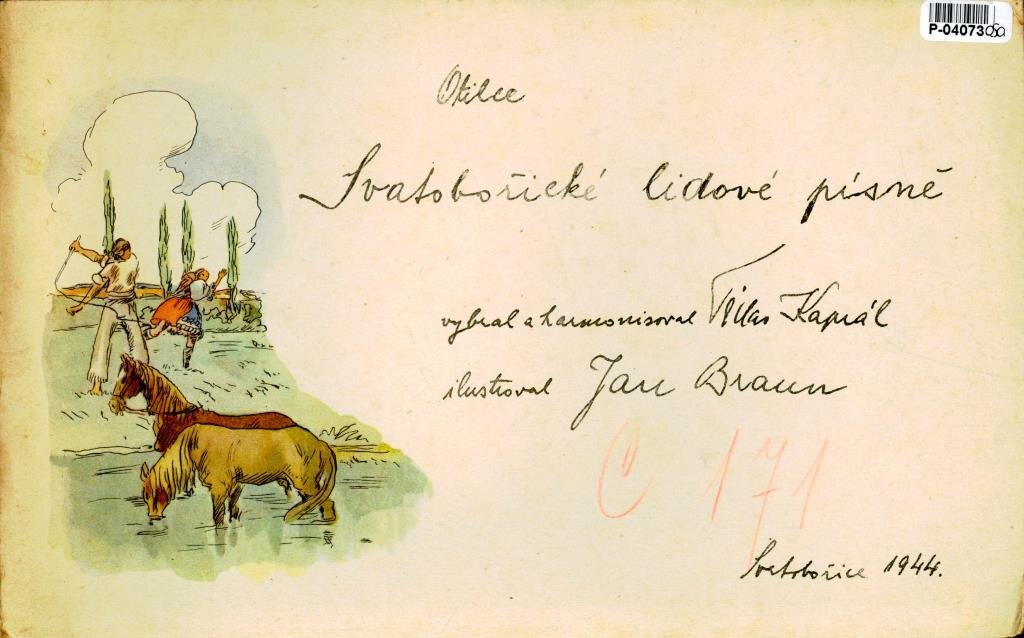 P-04073050
Otilce
Svatobořické lidové písně
vybral a harmonisoval Vilém Kaprál
ilustroval Jan Braun
C 171
Svatobořice 1944.